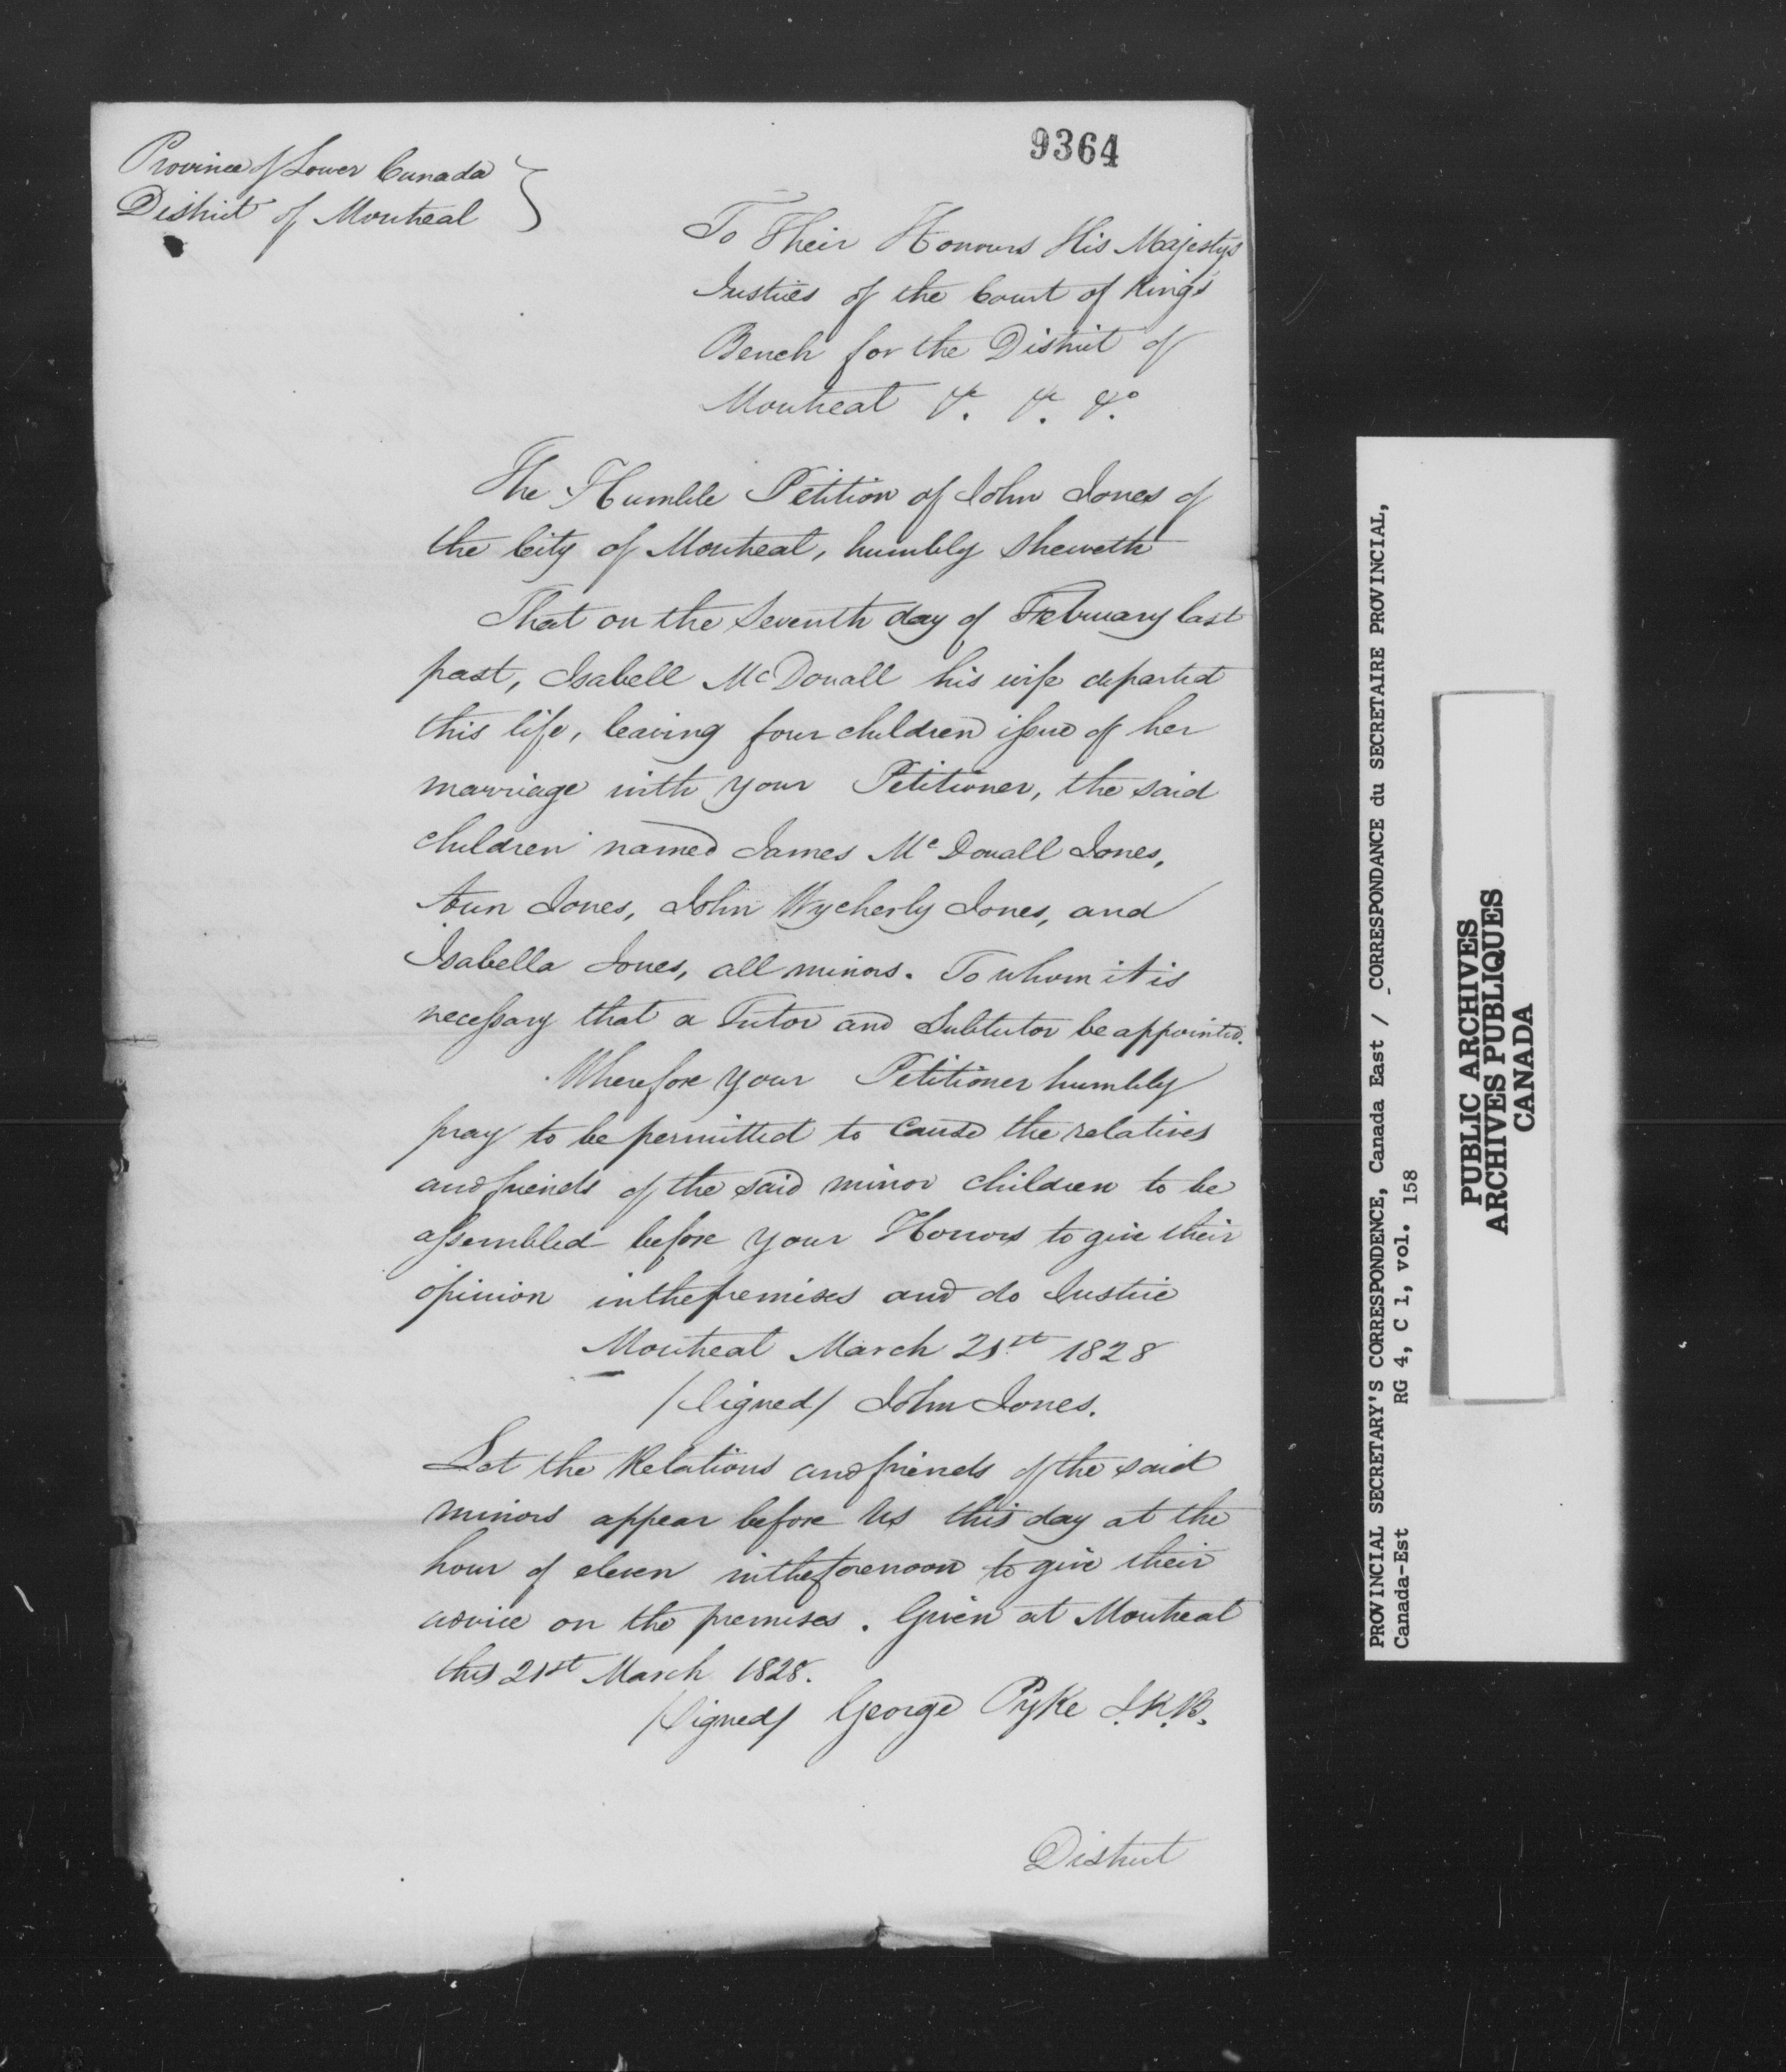 9364
Province of Lower Canada }
District of Montreal
To Their Honours His Majestys
Justices of the Court of King's
Bench for the District of
Montreal &c. &c. &c.
The Humble Petition of John Jones of
the City of Montreal, humbly sheweth
That on the Seventh day of February last
past, Isabell McDouall his wife departed
this life, leaving four children issue of her
marriage with your Petitioner, the said
children named James McDouall Jones,
Ann Jones, John Wycherly Jones, and
Isabella Jones, all minors. To whom it is
necessary that a Tutor and Subtutor be appointed.
Wherefore your Petitioner humbly
pray to be permitted to cause the relatives
and friends of the said minor children to be
assembled before your Honors to give their
opinion in the premises and do Justice
Montreal March 21st 1828
/Signed/ John Jones.
Let the Relations and friends of the said
minors appear before us this day at the
hour of eleven in the forenoon to give their
advice on the premises. Given at Montreal
this 21st March 1828.
/Signed/ George Pyke J.K.B.
District
PROVINCIAL SECRETARY'S CORRESPONDENCE, Canada East / CORRESPONDANCE du SECRETAIRE PROVINCIAL,
Canada-Est RG 4, C 1, vol. 158
PUBLIC ARCHIVES
ARCHIVES PUBLIQUES
CANADA